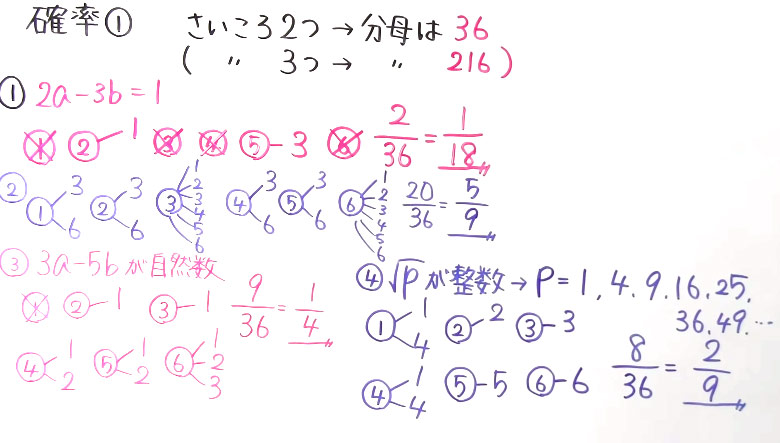 確率①
さいころ2つ→分母は36
( 〃 3つ→ 〃 216 )
① 2a-3b=1
① ②-1 ③ ④ ⑤-3 ⑥ 2/36=1/18
② ①<3 6 ②<3 6 ③<1 2 3 4 5 6 ④<3 6 ⑤<3 6 ⑥<1 2 3 4 5 6 20/36=5/9
③ 3a-5bが自然数
① ②-1 ③-1 9/36=1/4
④<1 2 ⑤<1 2 ⑥<1 2 3
④ √Pが整数→P=1,4,9,16,25,
36,49,…
①<1 4 ②-2 ③-3
④<1 4 ⑤-5 ⑥-6 8/36=2/9